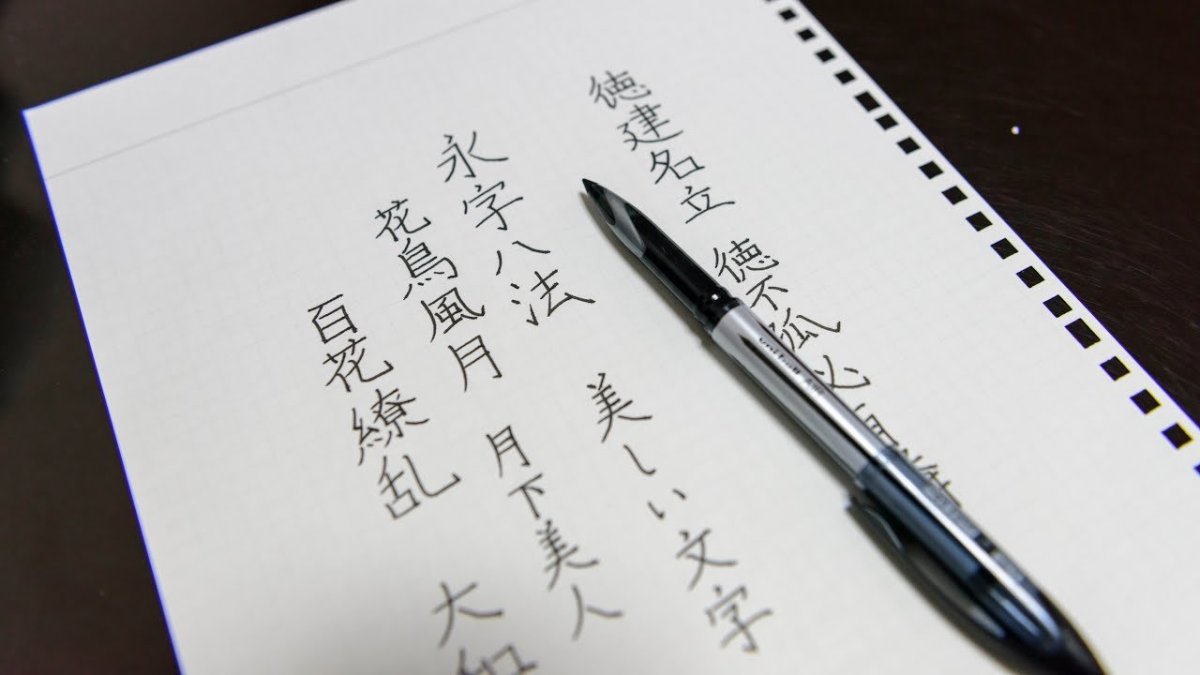 徳建名立 徳不孤必有隣
永字八法 美しい文字
花鳥風月 月下美人
百花繚乱 大和
uni-ball